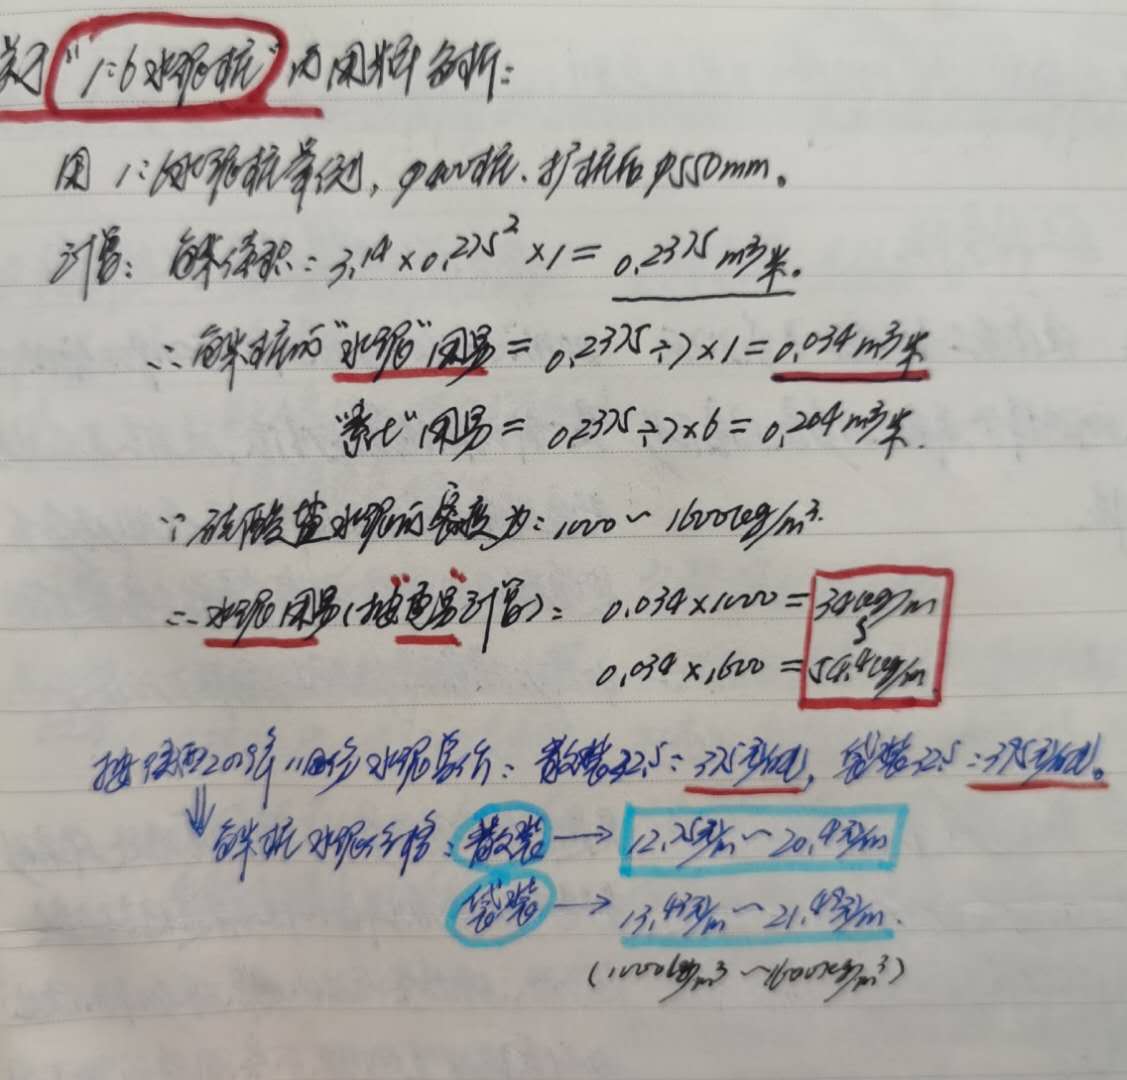 关于"1:6水泥桩"的用料分析:
用1:6水泥桩举例,φ400桩.扩桩后φ550mm。
计算:每米体积:3.14×0.275²×1=0.2375m³/米。
∴每米桩的"水泥"用量=0.2375÷7×1=0.034m³/米
"素土"用量=0.2375÷7×6=0.204m³/米.
∵硅酸盐水泥的容度为:1000~1600kg/m³.
∴水泥用量(按"重量"计算):0.034×1000=34kg/m
~
0.034×1600=54.4kg/m
按陕西2009年水泥信价:散装32.5:375元/吨,袋装32.5:395元/吨。
⇓每米桩水泥价格:散装→12.75元/m~20.4元/m
袋装→13.43元/m~21.49元/m.
(1000kg/m³~1600kg/m³)